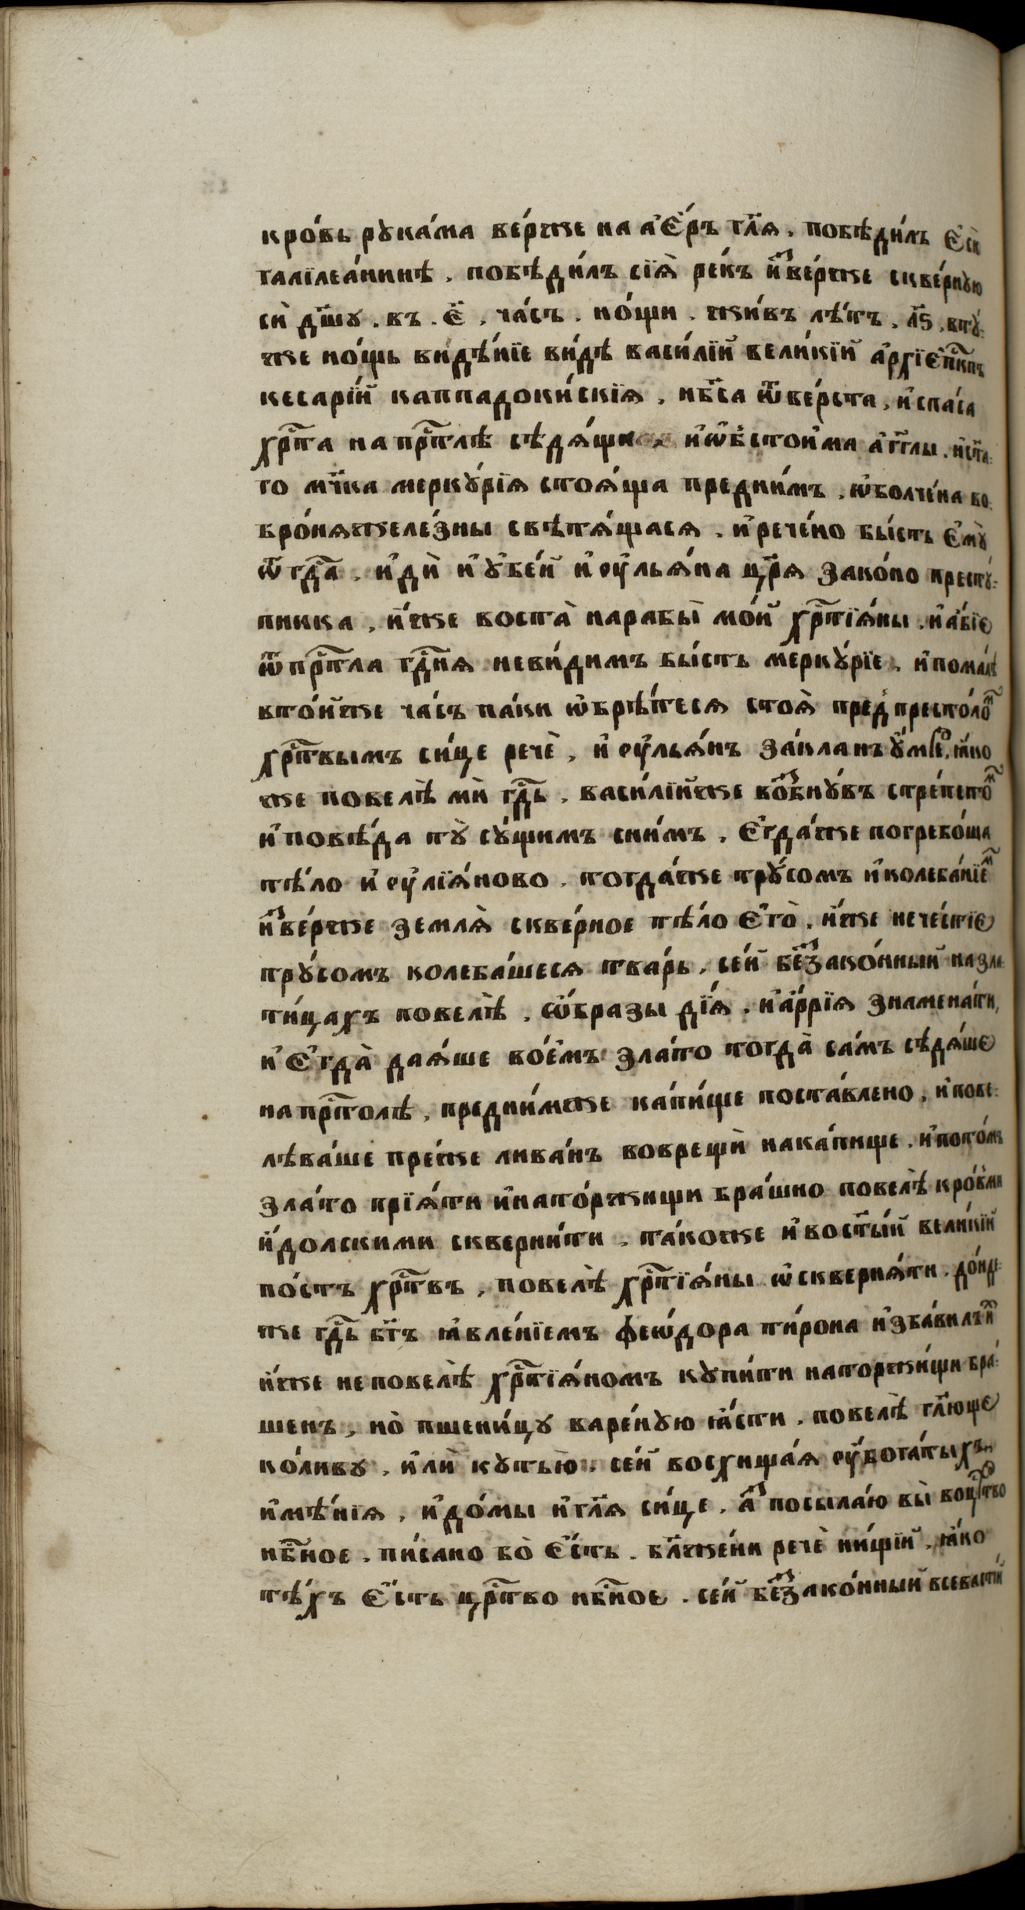 кро́вь рꙋка́ма ве́рже на а҆е́ръ гл҃ѧ . побѣди́лъ є҆сѝ
галїлеа́нине . побѣди́лъ сїѧ̀ ре́къ и҆зве́рже скве́рнꙋю
сѝ дш҃ꙋ . въ . є҃ . ча́съ . но́щи . жи́въ лѣ́тъ . л҃ѕ . втꙋ́
же но́щь видѣ́нїе ви́дѣ васи́лїй вели́кїй а҆рхїепⷭ҇кпъ
кесарі́й каппадокі́йскїѧ . нб҃са ѿве́рста , и҆спа́са
хрⷭ҇та на прⷭ҇тлѣ сѣдѧ́щи , и҆ѡ҆́б̾стои́ма а҆́гг҃лы . и҆ст҃а
го мч҃ка меркꙋ́рїѧ стоѧ́ща преднимъ , ѡ҆болче́на во
бро́нѧжеле́зны свѣтѧ́щасѧ . и҆ рече́но бы́сть є҆мꙋ̀
ѿ гдⷭ҇а . и҆дѝ и҆ ᲂу҆бе́й и҆ᲂу҆льѧ́на цр҃ѧ зако́но престꙋ́
пника , и҆́же воста̀ нарабы̀ моѝ хрⷭ҇тїѧ́ны . и҆а҆́бїе
ѿпрⷭ҇тла гдⷭ҇нѧ неви́димъ бы́сть меркꙋ́рїе . и҆помалѣ
вто́йже ча́съ па́ки ѡ҆брѣ́тесѧ стоѧ̀ пред̾престо́ломъ
хрⷭ҇твымъ си́це речѐ , и҆ ᲂу҆льѧ́нъ закла́нъ ᲂу҆́мре , ꙗ҆́ко
же повелѣ̀ мѝ гдⷭ҇ь . васи́лїйже возбнꙋ́въ стре́петомъ
и҆повѣ́да тꙋ̀ сꙋ́щимъ снимъ . є҆гда́же погребо́ша
тѣ́ло и҆ᲂу҆лїѧ́ново . тогда́же трꙋ́сомъ и҆колеба́нїемъ
и҆зве́рже землѧ̀ скве́рное тѣ́ло є҆гѡ̀ . и҆́же нече́стїе
трꙋ́сомъ колеба́шесѧ тва́рь . се́й без̾зако́нный назла
ти́цахъ повелѣ̀ , ѡ҆́бразы ді́ѧ . и҆а҆́ррїѧ знамена́ти ,
и҆ є҆гда̀ даѧ́ше во́емъ зла́то тогда̀ са́мъ сѣдѧ́ше
на прⷭ҇толѣ , предни́мже ка́пище поста́влено , и҆пове
лѣва́ше пре́же лива́нъ воврещѝ нака́пище . и҆пото́мъ
зла́то прїѧ́ти и҆нато́ржищи бра́шно повелѣ̀ кро́вми
и҆́долскими скверни́ти . та́коже и҆ вост҃ы́й вели́кїй
по́стъ хрⷭ҇твъ , повелѣ̀ хрⷭ҇тїѧ́ны ѡ҆сквернѧ́ти . до́нде
же гдⷭ҇ь бг҃ъ ꙗ҆вле́нїемъ феѡ́дора ти́рона и҆зба́вилъ
и҆́же неповелѣ̀ хрⷭ҇тїѧ́номъ кꙋпи́ти наторжи́щи бра́
шенъ , но̀ пшени́цꙋ варе́нꙋю ꙗ҆́сти . повелѣ̀ гл҃юще
ко́ливꙋ . и҆лѝ кꙋтью̀ . се́й восхища́ѧ ᲂу҆бога́тыхъ
и҆мѣ́нїѧ , и҆ до́мы и҆ гл҃ѧ си́це . а҆́зъ посыла́ю вы̀ воцрⷭ҇тво
нбⷭ҇ное . пи́сано бо̀ є҆́сть . бл҃же́ни речѐ ни́щїй . ꙗ҆́ко
тѣ́хъ є҆́сть црⷭ҇тво нбⷭ҇ное . се́й без̾зако́нный